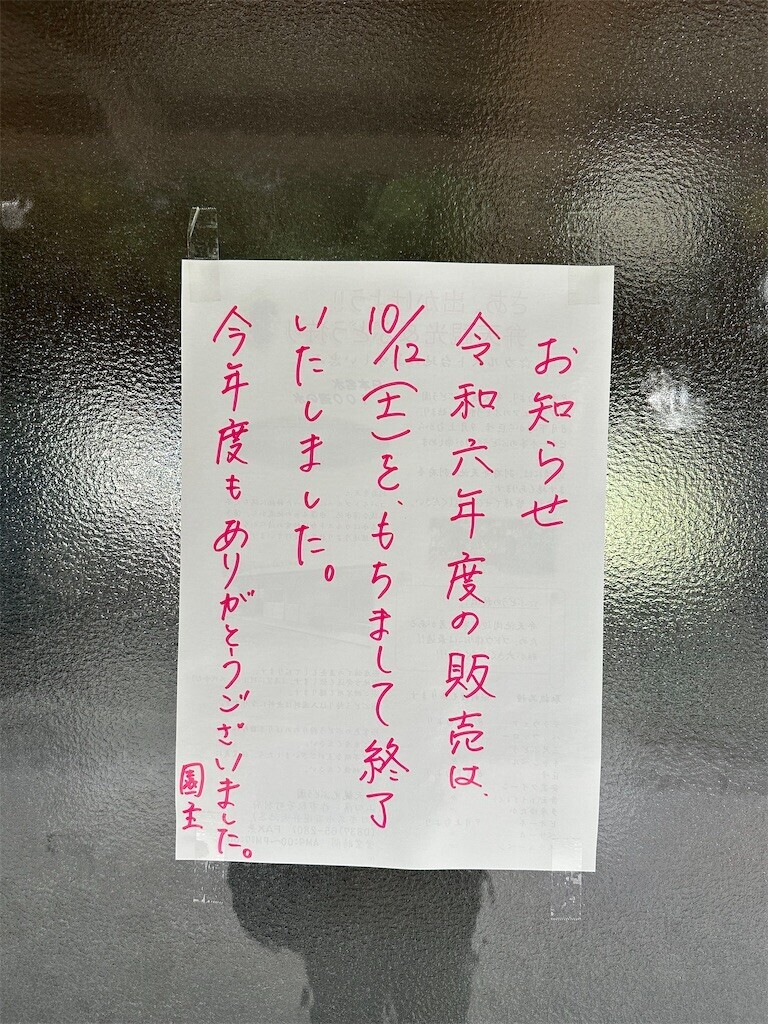 お知らせ
令和六年度の販売は、
10/12(土)を、もちまして終了
いたしました。
今年度もありがとうございました。
園主